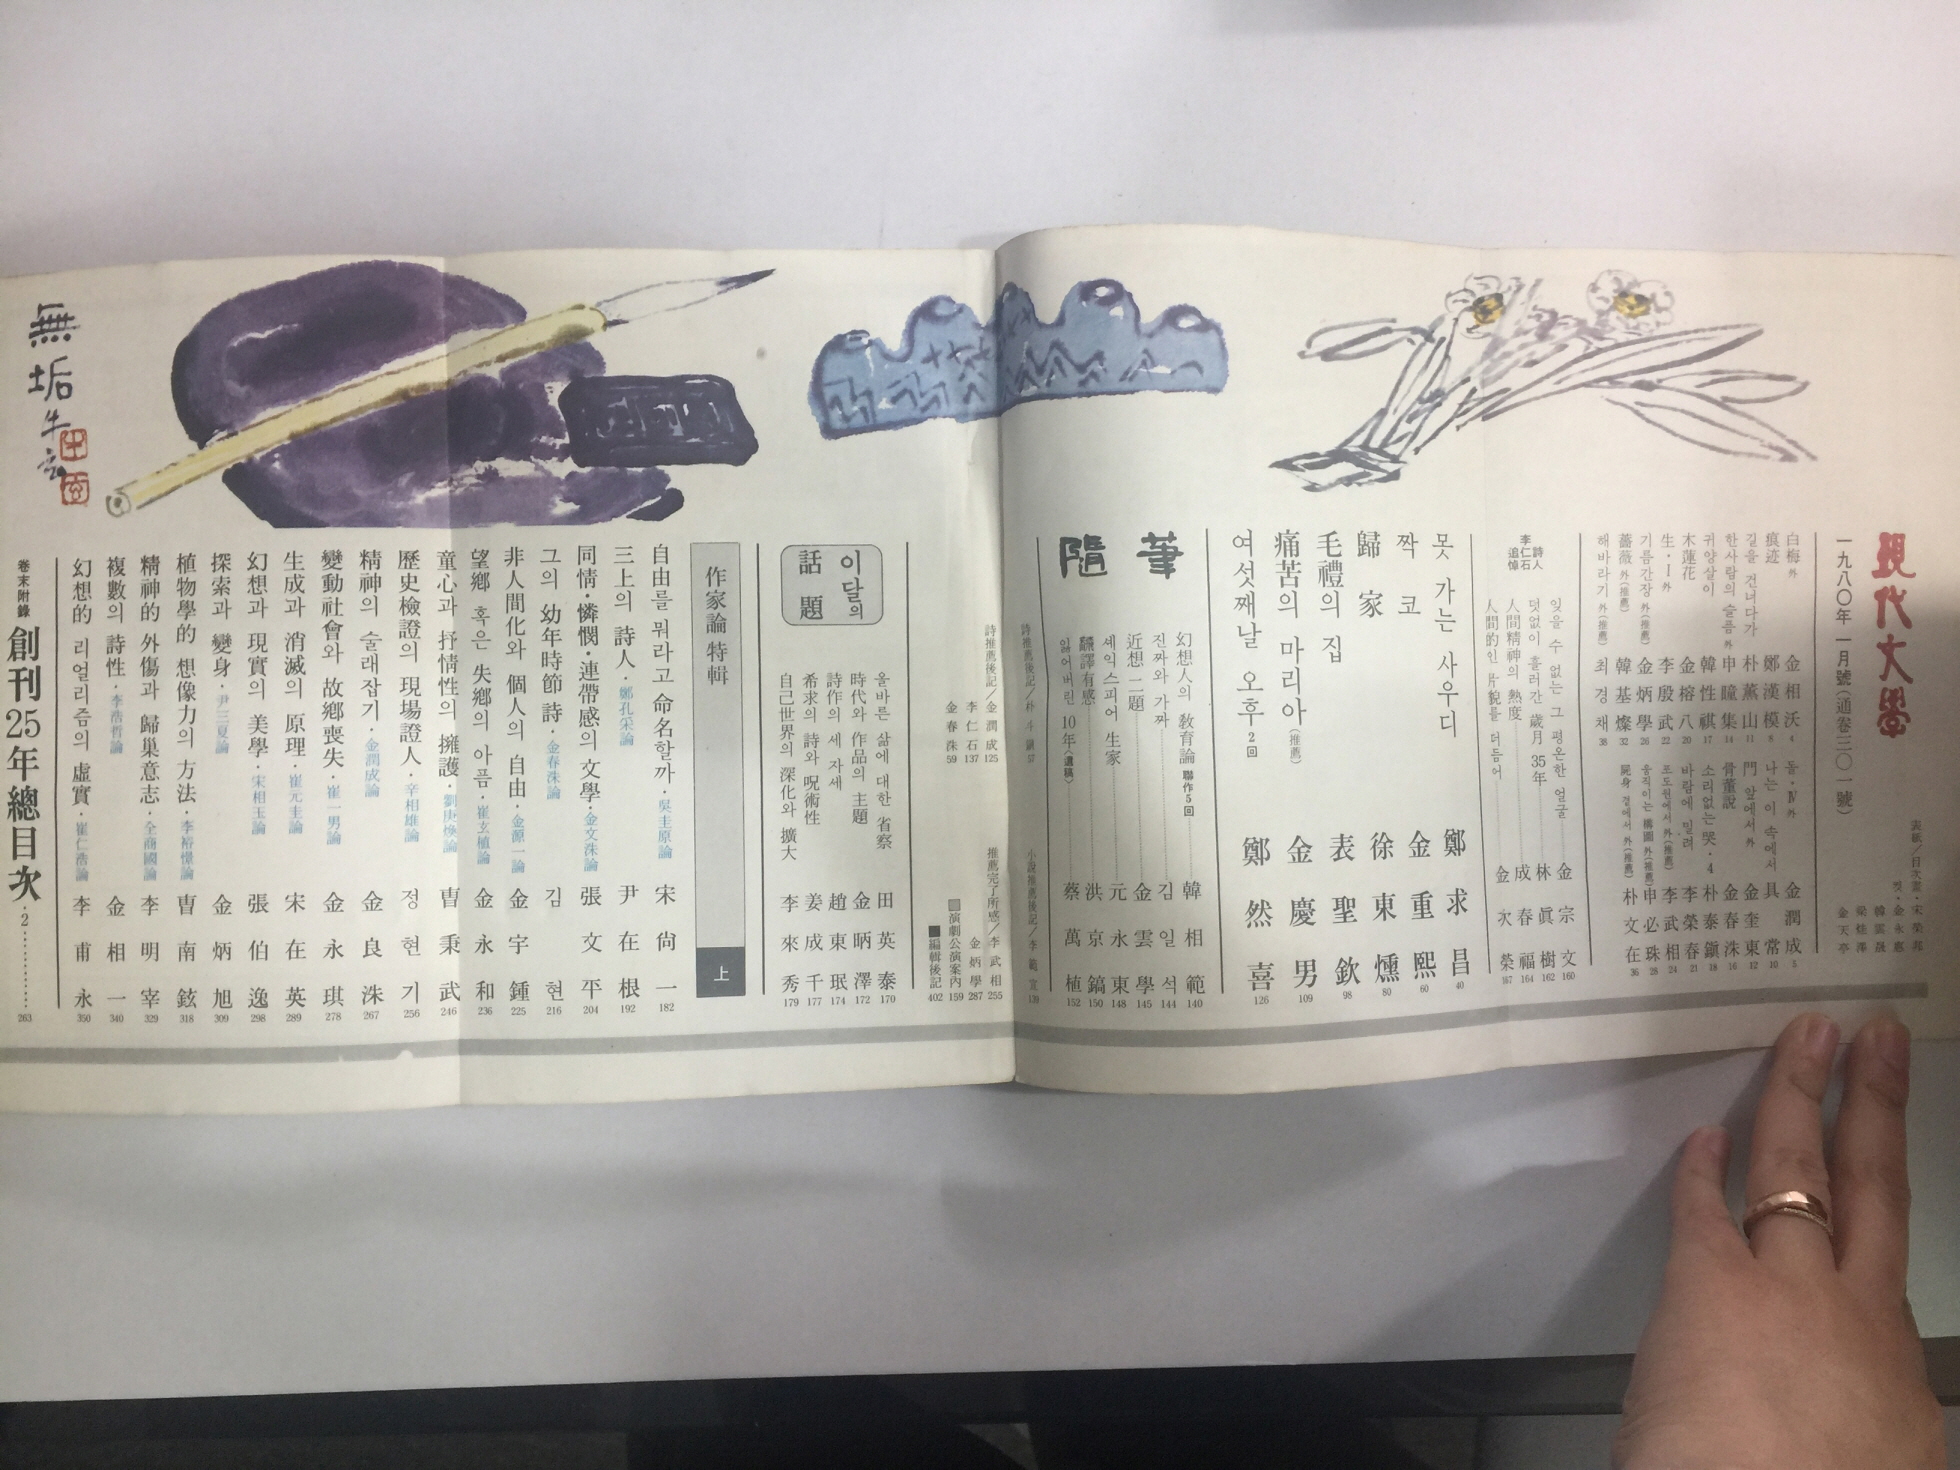 現代文學
一九八〇年 一月號(通卷三〇一號)
表紙/目次畫·宋榮邦
金天亭
白梅 外 金相沃 4
痕迹 鄭漢模 8
길을 건너다가 朴薰山 11
한사람의 슬픔 外 申瞳集 14
귀양살이 韓性祺 17
木蓮花 金榕八 20
生·I 外 李殷武 22
기름간장 外(推薦) 金炳學 26
薔薇 外(推薦) 韓基燦 32
해바라기 外(推薦) 최경채 38
돌·Ⅳ 外 金潤成 5
나는 이 속에서 具常 10
門 앞에서 外 金奎東 12
骨董說 金春洙 16
소리없는 哭·4 朴泰鎭 18
바람에 밀려 李榮春 21
포도원에서 外(推薦) 李武相 24
움직이는 構圖 外(推薦) 申必珠 28
屍身 곁에서 外(推薦) 朴文在 36
詩人 李仁石 追悼
잊을 수 없는 그 평온한 얼굴 金宗文 160
덧없이 흘러간 歲月 35年 林眞樹 162
人間精神의 熱度 成春福 164
人間的인 片貌를 더듬어 金次榮 167
못 가는 사우디 鄭求昌 40
짝코 金重熙 60
歸家 徐東燻 80
毛禮의 집 表聖欽 98
痛苦의 마리아(推薦) 金慶男 109
여섯째날 오후 2回 鄭然喜 126
隨筆
幻想人의 敎育論 聯作5回 韓相範 140
진짜와 가짜 김일석 144
近想 二題 金雲學 145
셰익스피어 生家 元永東 148
飜譯有感 洪京鎬 150
잃어버린 10年(遺稿) 蔡萬植 152
詩推薦後記/朴斗鎭 57
小說推薦後記/李範宣 139
詩推薦後記/金潤成 125
李仁石 137
金春洙 59
推薦完了所感/李武相 255
金炳學 287
演劇公演案內 159
編輯後記 402
이달의 話題
올바른 삶에 대한 省察 田英泰 170
時代와 作品의 主題 金昞澤 172
詩作의 세 자세 趙東珉 174
希求의 詩와 呪術性 姜成千 177
自己世界의 深化와 擴大 李來秀 179
作家論 特輯 上
自由를 뭐라고 命名할까·吳圭原論 宋尙一 182
三上의 詩人·鄭孔采論 尹在根 192
同情·憐憫·連帶感의 文學·金文洙論 張文平 204
그의 幼年時節 詩·金春洙論 김현 216
非人間化와 個人의 自由·金源一論 金宇鍾 225
望鄉 혹은 失鄉의 아픔·崔玄植論 金永和 236
童心과 抒情性의 擁護·劉庚煥論 曺秉武 246
歷史檢證의 現場證人·辛相雄論 정현기 256
精神의 술래잡기·金潤成論 金良洙 267
變動社會와 故鄉喪失·崔一男論 金永琪 278
生成과 消滅의 原理·崔元圭論 宋在英 289
幻想과 現實의 美學·宋相玉論 張伯逸 298
探索과 變身·尹三夏論 金炳旭 309
植物學的 想像力의 方法·李裕憬論 曺南鉉 318
精神的 外傷과 歸巢意志·全商國論 李明宰 329
複數의 詩性·李浩哲論 金相一 340
幻想的 리얼리즘의 虛實·崔仁浩論 李甫永 350
卷末附錄 創刊25年總目次·2 263
無垢
牛玄